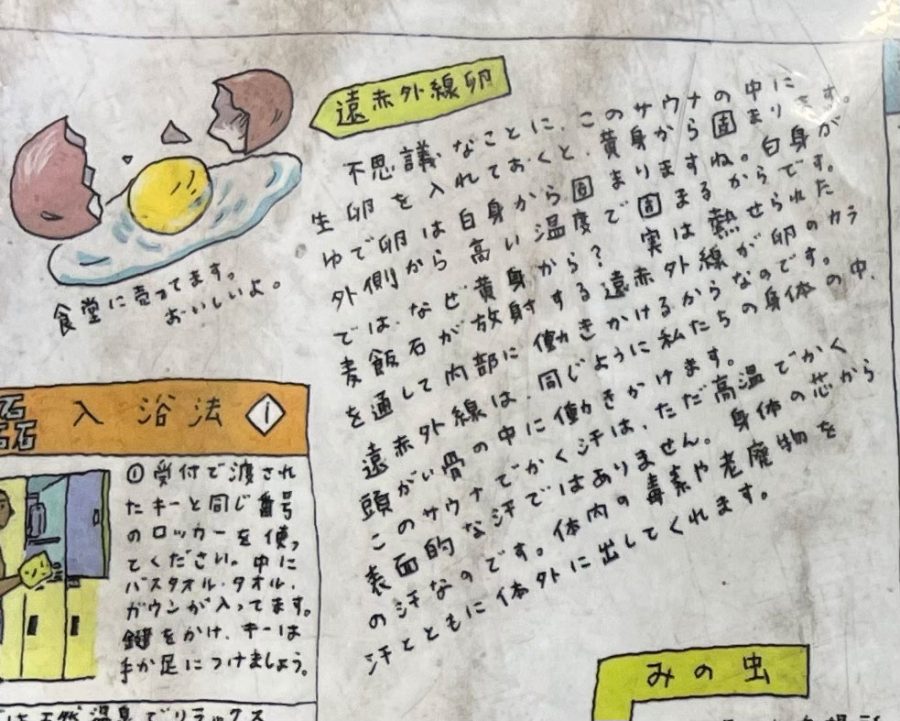 遠赤外線卵
不思議なことに、このサウナの中に
生卵を入れておくと、黄身から固まります。
ゆで卵は白身から固まりますね。白身が
外側から高い温度で固まるからです。
では、なぜ黄身から?実は熱せられた
麦飯石が放射する遠赤外線が卵のカラ
を通して内部に働きかけるからなのです。
遠赤外線は、同じように私たちの身体の中、
頭がい骨の中に働きかけます。
このサウナでかく汗は、ただ高温でかく
表面的な汗ではありません。身体の芯から
の汗なのです。体内の毒素や老廃物を
汗とともに体外に出してくれます。
食堂に売ってます。
おいしいよ。
入浴法①
①受付で渡され
たキーと同じ番号
のロッカーを使っ
てください。中に
バスタオル・タオル・
ガウンが入ってます。
鍵をかけ、キーは
手か足につけましょう。
天然温泉でリラックス
みの虫